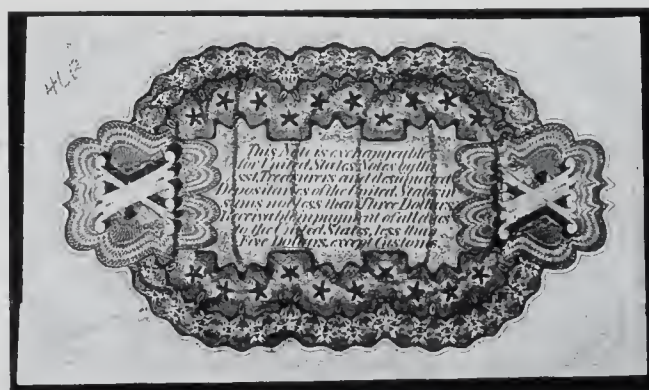 This Note is exchangeable
for United States Notes by the
Asst. Treasurers and designated De
positaries of the United States in
sums not less than Three Dollars. Re
ceivable in payment of all dues
to the United States, less than
Five Dollars, except Customs.